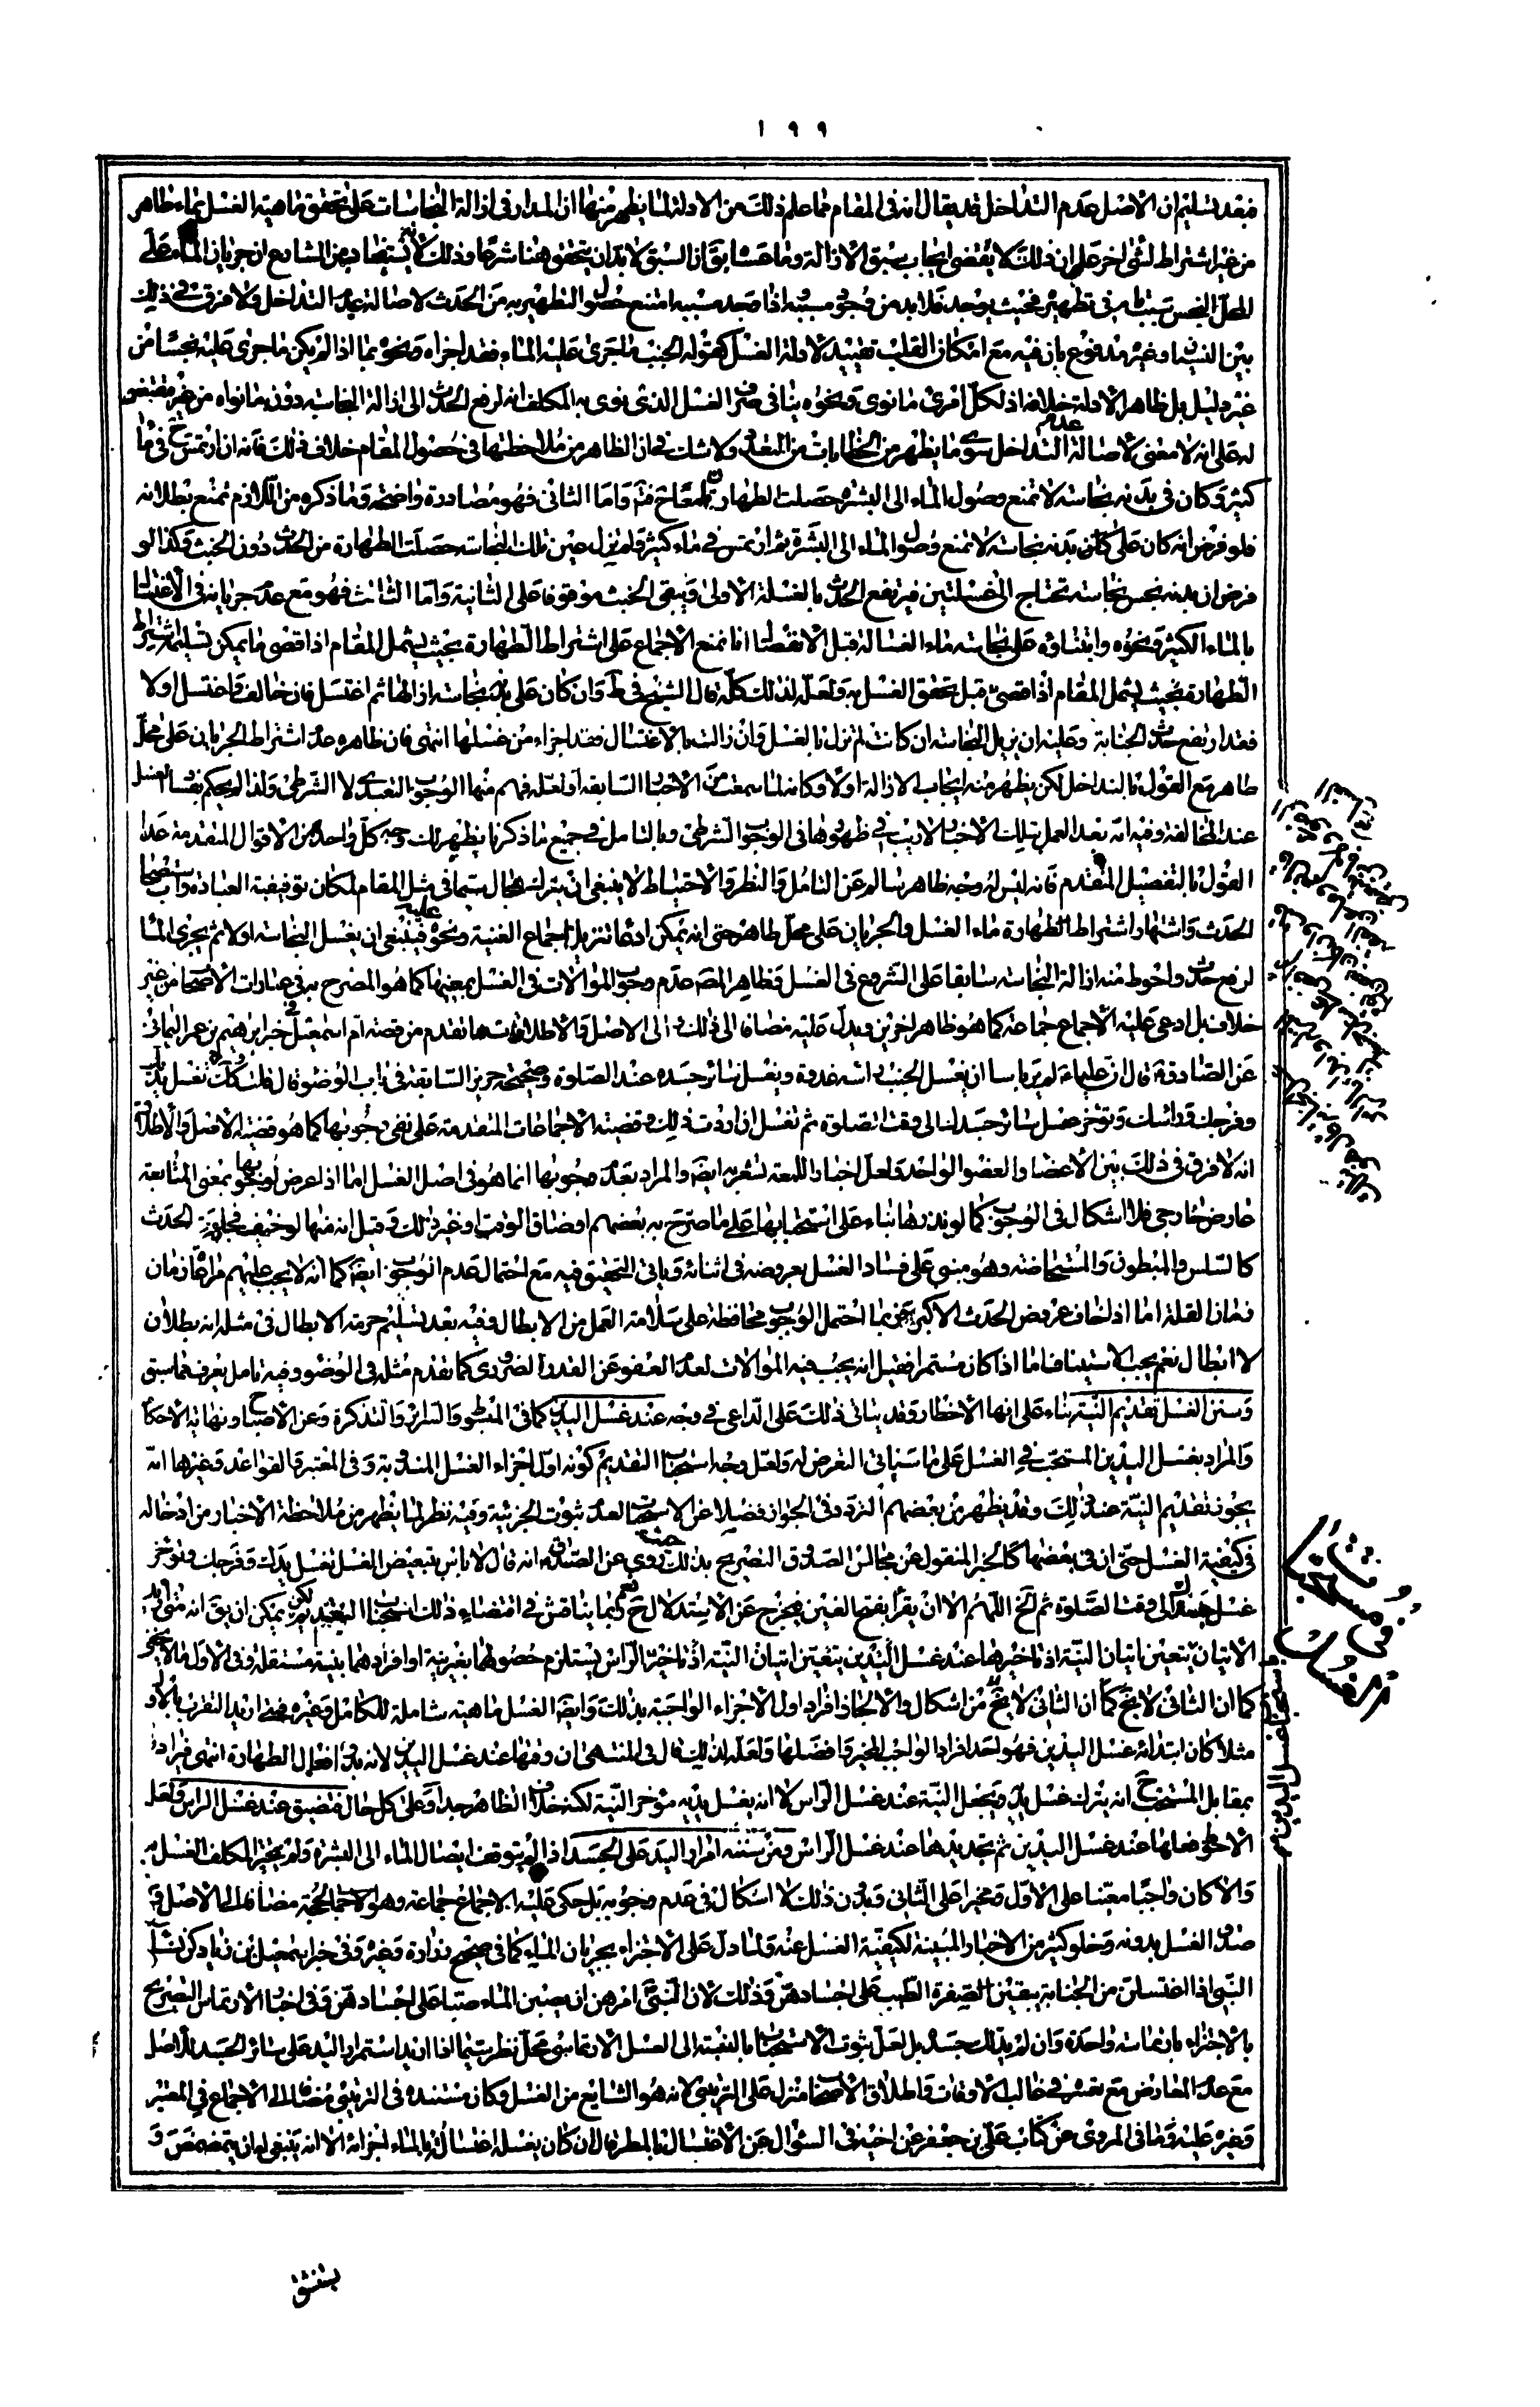 ١٩٩
فبعد تسليم ان الاصل عدم التداخل قد يقال انه في المقام مما علم ذلك من الادلة لما يظهر منها ان المدار في ازالة النجاسات على تحقق ماهية الغسل بماء طاهر
من غير اشتراط لشئ اخر على ان ذلك لا يقضي ايجاب سبق الازالة
المحل النجس سبب تام في تطهيره فحيث يوجد فلا بد من وجود مسببه واذا وجد مسببه امتنع حصول التطهير به من الحدث لاصالة عدم التداخل ولا فرق في ذلك
بين النسيان وغيره مدفوع بان فيه مع امكان القلب تقييد لادلة الغسل كقوله الجنب ما جرى عليه الماء فقد اجزاه ونحوه بما اذا لم يكن ما جرى عليه نجسا من
غير دليل بل ظاهر الادلة خلافه اذ لكل امرئ ما نوى ونحوه ينافي صرف الغسل الذي نوى به المكلف انه لرفع الحدث الى ازالة النجاسة دون ما نواه من غير مقتض
له على انه لا معنى لاصالة عدم التداخل سوى ما يظهر من الخطابات من التعدد ولا شك في ان الظاهر من ملاحظتها في حصول المقام خلاف ذلك فانه ان ارتمس ح في ماء
كثير وكان في بدنه نجاسة لا تمنع وصول الماء الى البشرة حصلت الطهارتان واما الثاني فهو مصادرة واضحة وما ذكره من اللازم نمنع بطلانه
فلو فرض انه كان على بدنه نجاسة لا تمنع وصول الماء الى البشرة ثم ارتمس في ماء كثير ولم يزل عين تلك النجاسة حصلت الطهارة من الحدث دون الخبث وكذا لو
فرض ان بدنه نجس بنجاسة تحتاج الى غسلتين فيرتفع الحدث بالغسلة الاولى ويبقى الخبث موقوفا على الثانية واما الثالث فهو مع عدم جريانه في الاغتسال
بالماء الكثير ونحوه وابتناؤه على نجاسة ماء الغسالة قبل الانفصال انا نمنع الاجماع على اشتراط الطهارة بحيث يشمل المقام اذ اقصى ما يمكن تسليمه اشتراط
الطهارة بحيث يشمل المقام اذ اقصى قبل تحقق الغسل به ولعله لذلك كله قال الشيخ في ط وان كان على بدنه نجاسة ازالها ثم اغتسل فان خالف واغتسل اولا
فقد ارتفع حدث الجنابة وعليه ان يزيل النجاسة ان كانت لم تزل بالغسل وان زالت بالاغتسال فقد اجزاه من غسلها انتهى فان ظاهره عدم اشتراط الجريان على محل
طاهر مع القول بالتداخل لكن يظهر منه ايجاب الازالة اولا وكانه لما سمعت من الاخبار السابقة او لعله فهم منها الوجوب التعبدي لا الشرطي ولذا لم يحكم بفساد الغسل
عند المخالفة وفيه انه بعد العمل بتلك الاخبار لا ريب في ظهورها في الوجوب الشرطي وبالتامل في جميع ما ذكرنا يظهر لك وجه كل واحد من الاقوال المتقدمة عدا
القول بالتفصيل المتقدم فانه ليس له وجه ظاهر سالم عن التامل والنظر والاحتياط لا ينبغي ان يترك بحال سيما في مثل المقام لمكان توقيفية العبادة واستصحاب
الحدث واشتهار اشتراط الطهارة ماء الغسل والجريان على محل طاهر حتى انه يمكن ادعاء تنزيل اجماع الغنية ونحوه عليه فينبغي ان يغسل النجاسة اولا ثم يجري الماء
لرفع حدث واحوط منه ازالة النجاسة سابقا على الشروع في الغسل فظاهر المصنف عدم وجوب الموالات في الغسل بمعنييها كما هو المصرح به في عبارات الاصحاب من غير
خلاف بل ادعى عليه الاجماع جماعة كما هو ظاهر اخرين ويدل عليه مضافا الى ذلك والى الاصل والاطلاقات ما تقدم من قصة ام اسمعيل في خبر ابراهيم بن عمر اليماني
عن الصادق ع قال ان عليا ع لم ير باسا ان يغسل الجنب راسه غدوة ويغسل سائر جسده عند الصلوة وصحيحة حريز السابقة في باب الوضوء
وفرجك وراسك وتؤخر غسل سائر جسدك الى وقت الصلوة ثم تغسل ان اردت ذلك وقضية الاجماعات المتقدمة على نفي وجوبها كما هو قضية الاصل والاطلاق
انه لا فرق في ذلك بين الاعضاء والعضو الواحد ولعل اخبار اللمعة تشعر به ايضا والمراد بعدم وجوبها انما هو في اصل الغسل اما اذا عرض وجوبها بمعنى المتابعة
عارض خارجي فلا اشكال في الوجوب كما لو نذرها بناء على استحبابها على ما صرح به بعضهم او ضاق الوقت وغير ذلك وقيل انه منها لو خيف فجاءة الحدث
كالسلس والمبطون والمستحاضة وهو مبني على فساد الغسل بعروضه في اثنائه وياتي التحقيق فيه مع احتمال عدم الوجوب ايضا كما انه لا يجب عليهم مراعاة زمان
فقدان القلة اما اذا خاف عروض الحدث الاكبر فربما احتمل الوجوب محافظة على سلامة العمل من الابطال وفيه بعد تسليم حرمة الابطال في مثله انه بطلان
لا ابطال نعم يجب الاستيناف اما اذا كان مستمرا فقيل انه يجب فيه الموالات لعدم العفو عن القدر الضروري كما تقدم مثله في الوضوء وفيه تامل يعرف مما سبق
وسنن الغسل تقديم النية بناء على انها الاخطار وقد ياتي ذلك على الداعي في وجه عند غسل اليدين كما في المبسوط والسرائر والتذكرة وعن الاصباح ونهاية الاحكام
والمراد بغسل اليدين المستحب في الغسل على ما سياتي التعرض له ولعل وجه استحباب التقديم كونه اول اجزاء الغسل المندوبة وفي المعتبر والقواعد وغيرها انه
يجوز تقديم النية عند ذلك وقد يظهر من بعضهم التردد في الجواز فضلا عن الاستحباب لعدم ثبوت الجزئية وفيه نظر لما يظهر من ملاحظة الاخبار من ادخاله
في كيفية الغسل حتى ان في بعضها كالخبر المنقول عن مجالس الصدوق التصريح بذلك حيث روي عن الصادق ع انه قال لا باس بتبعيض الغسل تغسل يدك وفرجك وتؤخر
غسل جسدك الى وقت الصلوة ثم الخ اللهم الا ان يقرأ بفتح الغين فيخرج عن الاستدلال ح نعم ربما يناقش في اقتضاء ذلك استحباب التقديم لكن يمكن ان يق انه متى اريد
الاتيان يتعين اتيان النية اذ تاخيرها عند غسل اليدين يتعين اتيان النية اذ تاخير الراس يستلزم حصولهما بغير نية او افرادهما بنية مستقلة وفي الاول ما لا يخفى
كما ان الثاني لا يخ كما ان الثاني لا يخ من اشكال والالجاز افراد اول الاجزاء الواجبة بذلك وايضا الغسل ماهية شاملة للكامل وغيره فمتى اريد التقرب بالاول
مثلا كان ابتدائه غسل اليدين فهو احد افراد الواجب المخير وافضلها ولعله لذلك قال في المنتهى ان وقتها عند غسل اليدين لانه بدؤ افعال الطهارة انتهى فيراد
بمقابل المستحب ح انه يترك غسل يديه ويجعل النية عند غسل الراس لا انه يغسل يديه مؤخر النية لكنه خلاف الظاهر جدا وعلى كل حال فتضيق عند غسل الراس ولعل
الاحوط فعلها عند غسل اليدين ثم تجديدها عند غسل الراس ومن سننه امرار اليد على الجسد اذا لم يتوقف ايصال الماء الى البشرة ولم يتخير المكلف الغسل به
والا كان واجبا معينا على الاول ومخيرا على الثاني وبدون ذلك لا اشكال في عدم وجوبه بل حكى عليه الاجماع جماعة وهو الحجة مضافا الى الاصل و
صدق الغسل بدونه وخلو كثير من الاخبار المبينة لكيفية الغسل عنه ولما دل على الاجتزاء بجريان الماء كما في صحيح زرارة وغيره وفي خبر اسمعيل بن زياد كن نساء
النبي اذا اغتسلن من الجنابة يبقين صفرة الطيب على اجسادهن وذلك لان النبي امرهن ان يصببن الماء صبا على اجسادهن وفي اخبار الارتماس التصريح
بالاجتزاء بارتماسة واحدة وان لم يدلك جسده بل لعل ثبوت الاستحباب بالنسبة الى الغسل الارتماسي محل نظر سيما اذا اريد استمرار اليد على سائر الجسد للاصل
مع عدم المعارض مع تعسره في غالب الاوقات واطلاق الاصحاب منزل على الترتيبي لانه هو الشايع من الغسل وكان مستنده في الترتيبي مضافا الى الاجماع في المعتبر
وغيره عليه وما في المروي عن كتاب علي بن جعفر عن اخيه في السؤال عن الاغتسال بالمطر قال ان كان يغسله اغتساله بالماء اجزاه الا انه ينبغي له ان يتمضمض و
في مستحبات الغسل
يستنشق